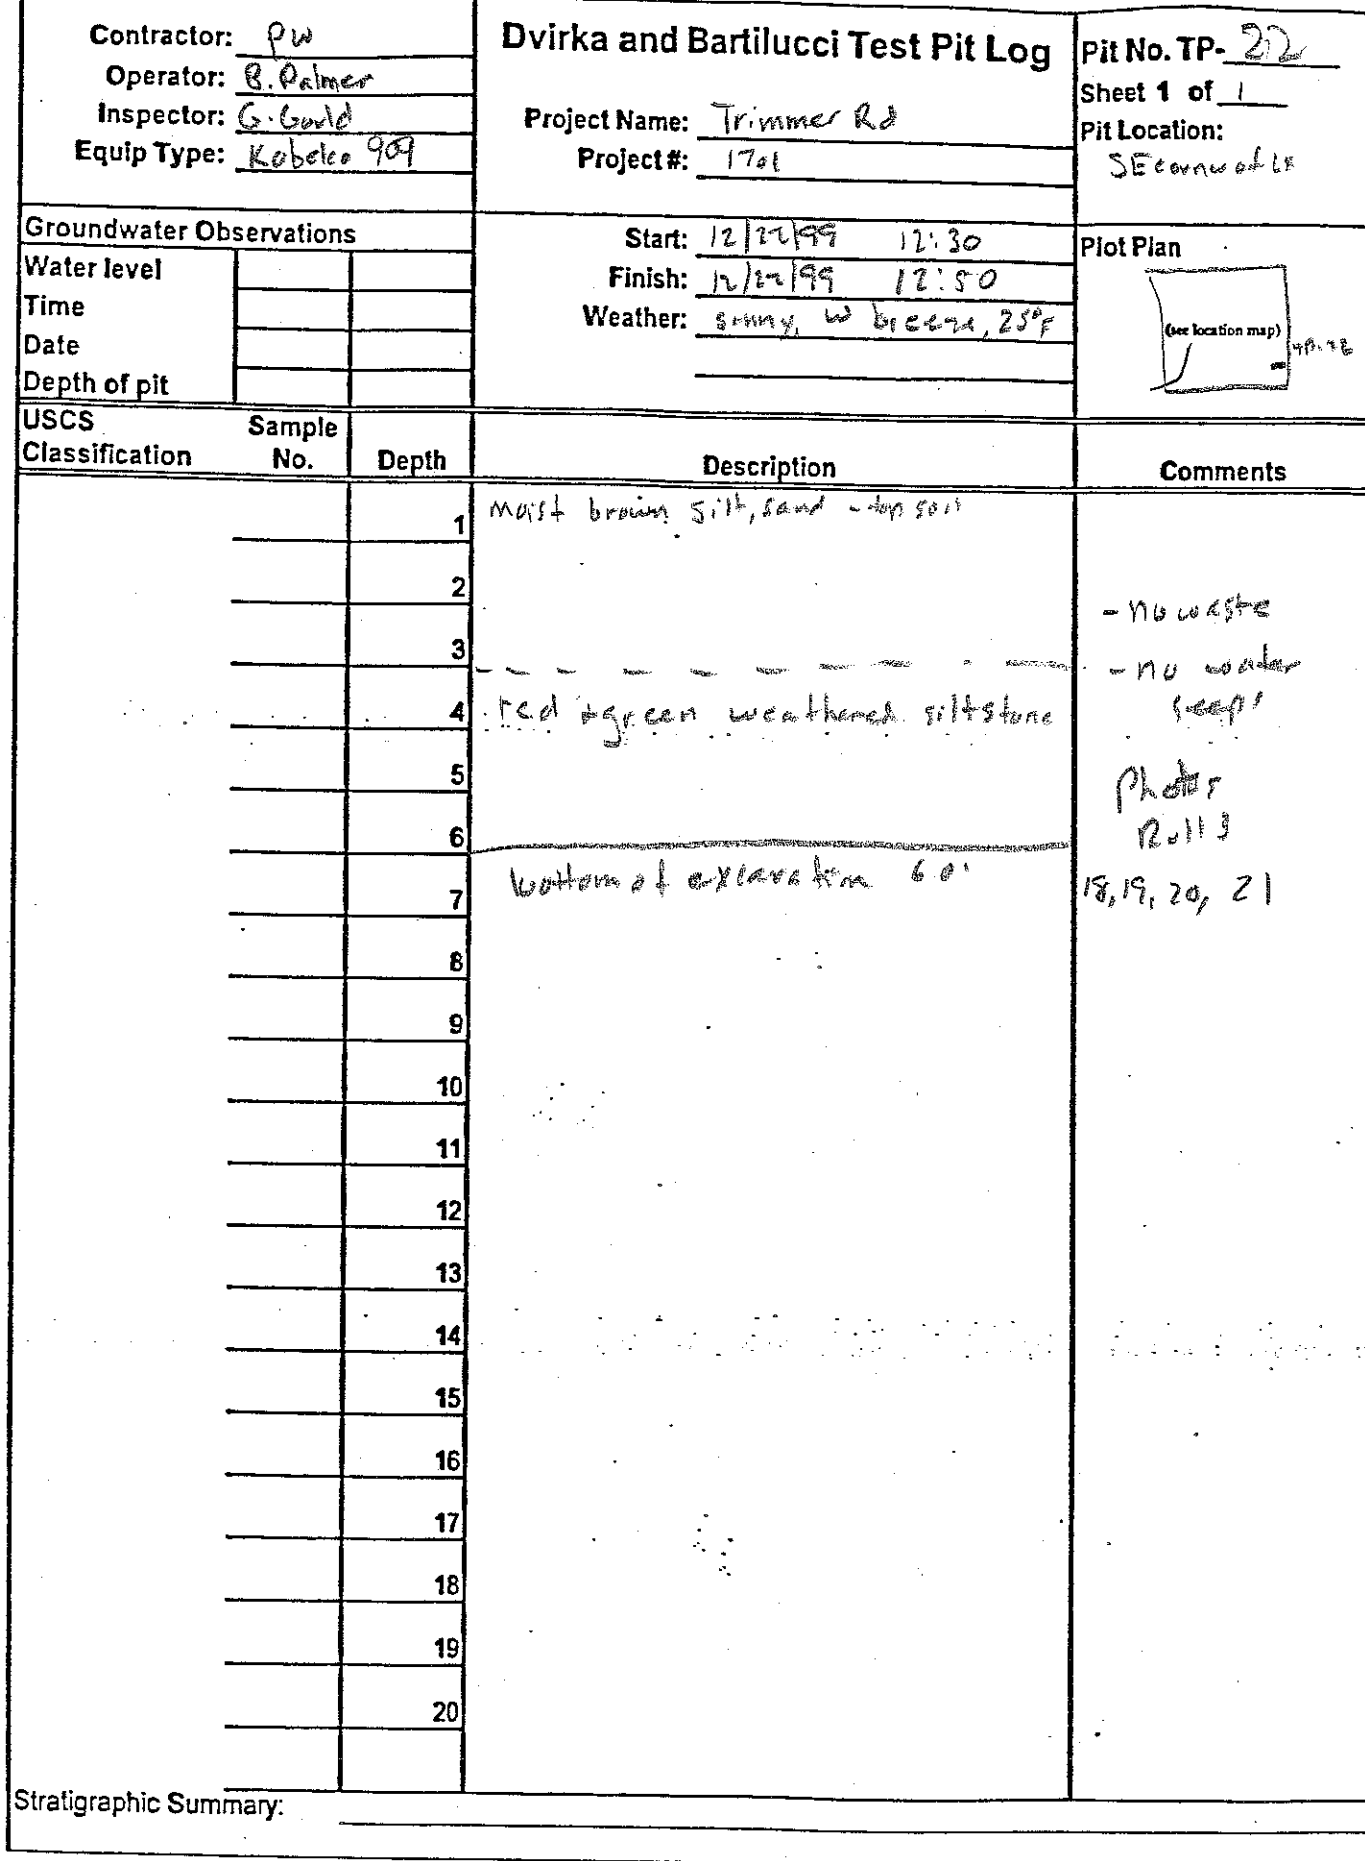 Contractor: PW
Operator: B. Palmer
Inspector: G. Gould
Equip Type: Kobelco 909
Dvirka and Bartilucci Test Pit Log
Project Name: Trimmer Rd
Project#: 1701
Pit No. TP- 22
Sheet 1 of 1
Pit Location:
SE corner of LF
Groundwater Observations
Water level
Time
Date
Depth of pit
Start: 12/22/99 12:30
Finish: 12/22/99 12:50
Weather: sunny, W breeze, 25°F
Plot Plan
(see location map)
USCS Classification
Sample No.
Depth
Description
Comments
1 moist brown silt, sand - top soil
2
- no waste
3
- no water
seeps
4 red + green weathered siltstone
5
Photos
Roll 3
6
bottom of excavation 6.0'
7
18, 19, 20, 21
8
9
10
11
12
13
14
15
16
17
18
19
20
Stratigraphic Summary: